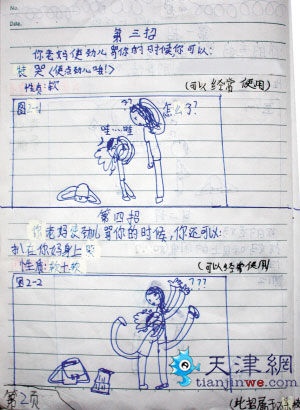 No.
Date.
第三招
你老妈使劲儿骂你的时候你可以:
装哭(使点劲儿哦!)
性质:软 (可以经常使用)
图2-1
怎么了?
哇…哇
第四招
你老妈使劲儿骂你的时候,你还可以:
趴在你妈身上哭
性质:软+软 (可以经常使用)
图2-2
???
???
天津網
tianjinwe.com
第2页
(此招属于